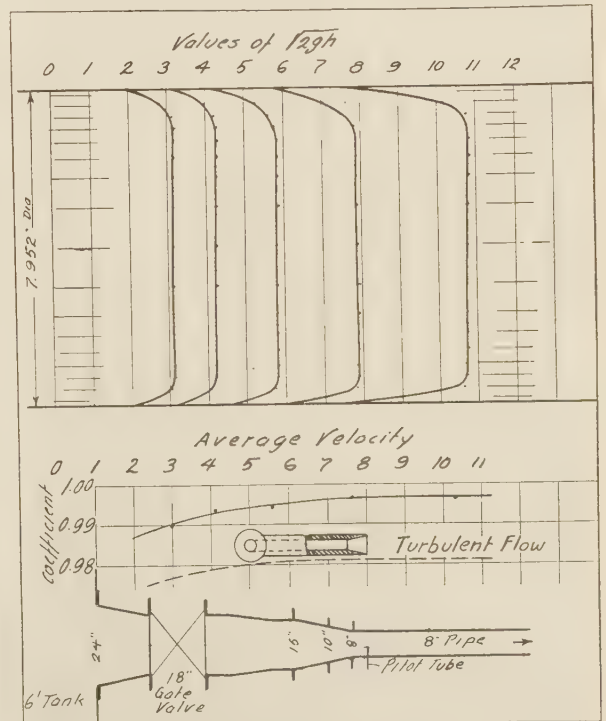 Values of √2gh
0 1 2 3 4 5 6 7 8 9 10 11 12
7.952" Dia
Average Velocity
0 1 2 3 4 5 6 7 8 9 10 11
1.00
0.99
0.98
coefficient
Turbulent Flow
24"
18"
Gate
Valve
15"
10"
8"
8" Pipe
Pilot Tube
6' Tank